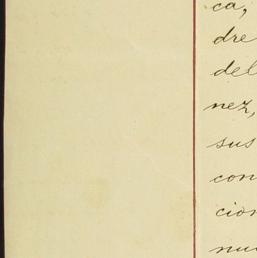 ca,
dre
del
nez,
sus
con
cion
nu